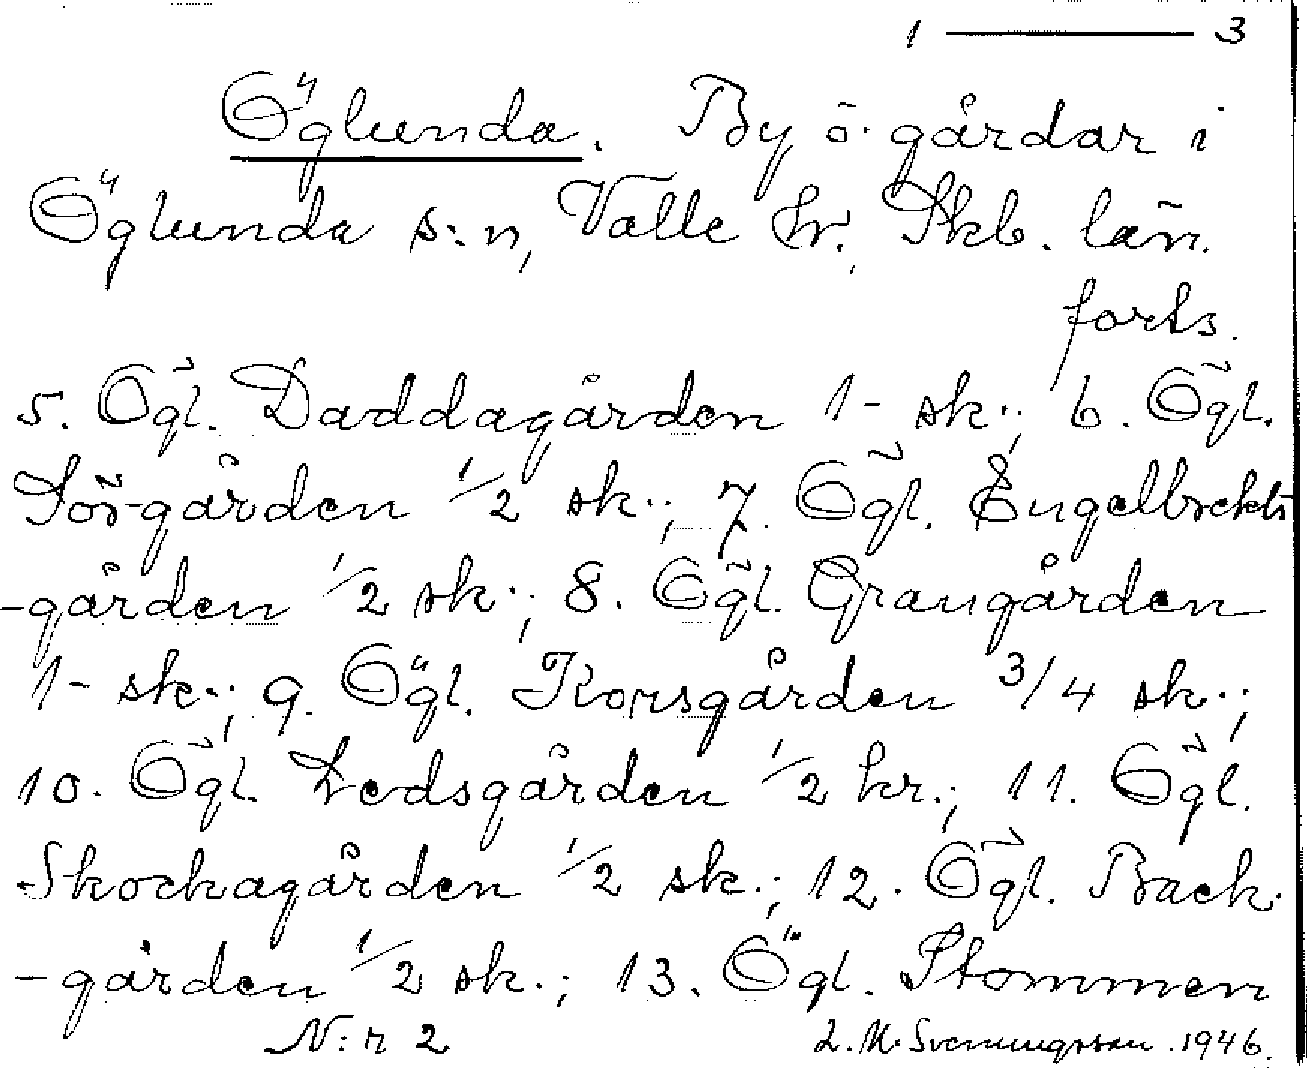 1 — 3
Öglunda. By o. gårdar i
Öglunda s:n, Valle hr., Skb. län.
forts.
5. Ögl. Daddagården 1- sk.; 6. Ögl.
Sör-gården 1/2 sk.; 7. Ögl. Engelbrekts
-gården 1/2 sk.; 8. Ögl. Grangården
1- sk.; 9. Ögl. Korsgården 3/4 sk.;
10. Ögl. Ledsgården 1/2 kr.; 11. Ögl.
Skockagården 1/2 sk.; 12. Ögl. Back-
-gården 1/2 sk.; 13. Ögl. Stommen
N:r 2 L. M. Svenungsson. 1946.